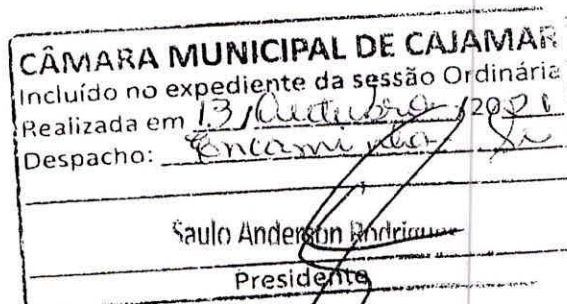 CÂMARA MUNICIPAL DE CAJAMAR
Incluído no expediente da sessão Ordinária
Realizada em 13/Outubro/2021
Despacho: Encaminha-se
Saulo Anderson Rodrigues
Presidente